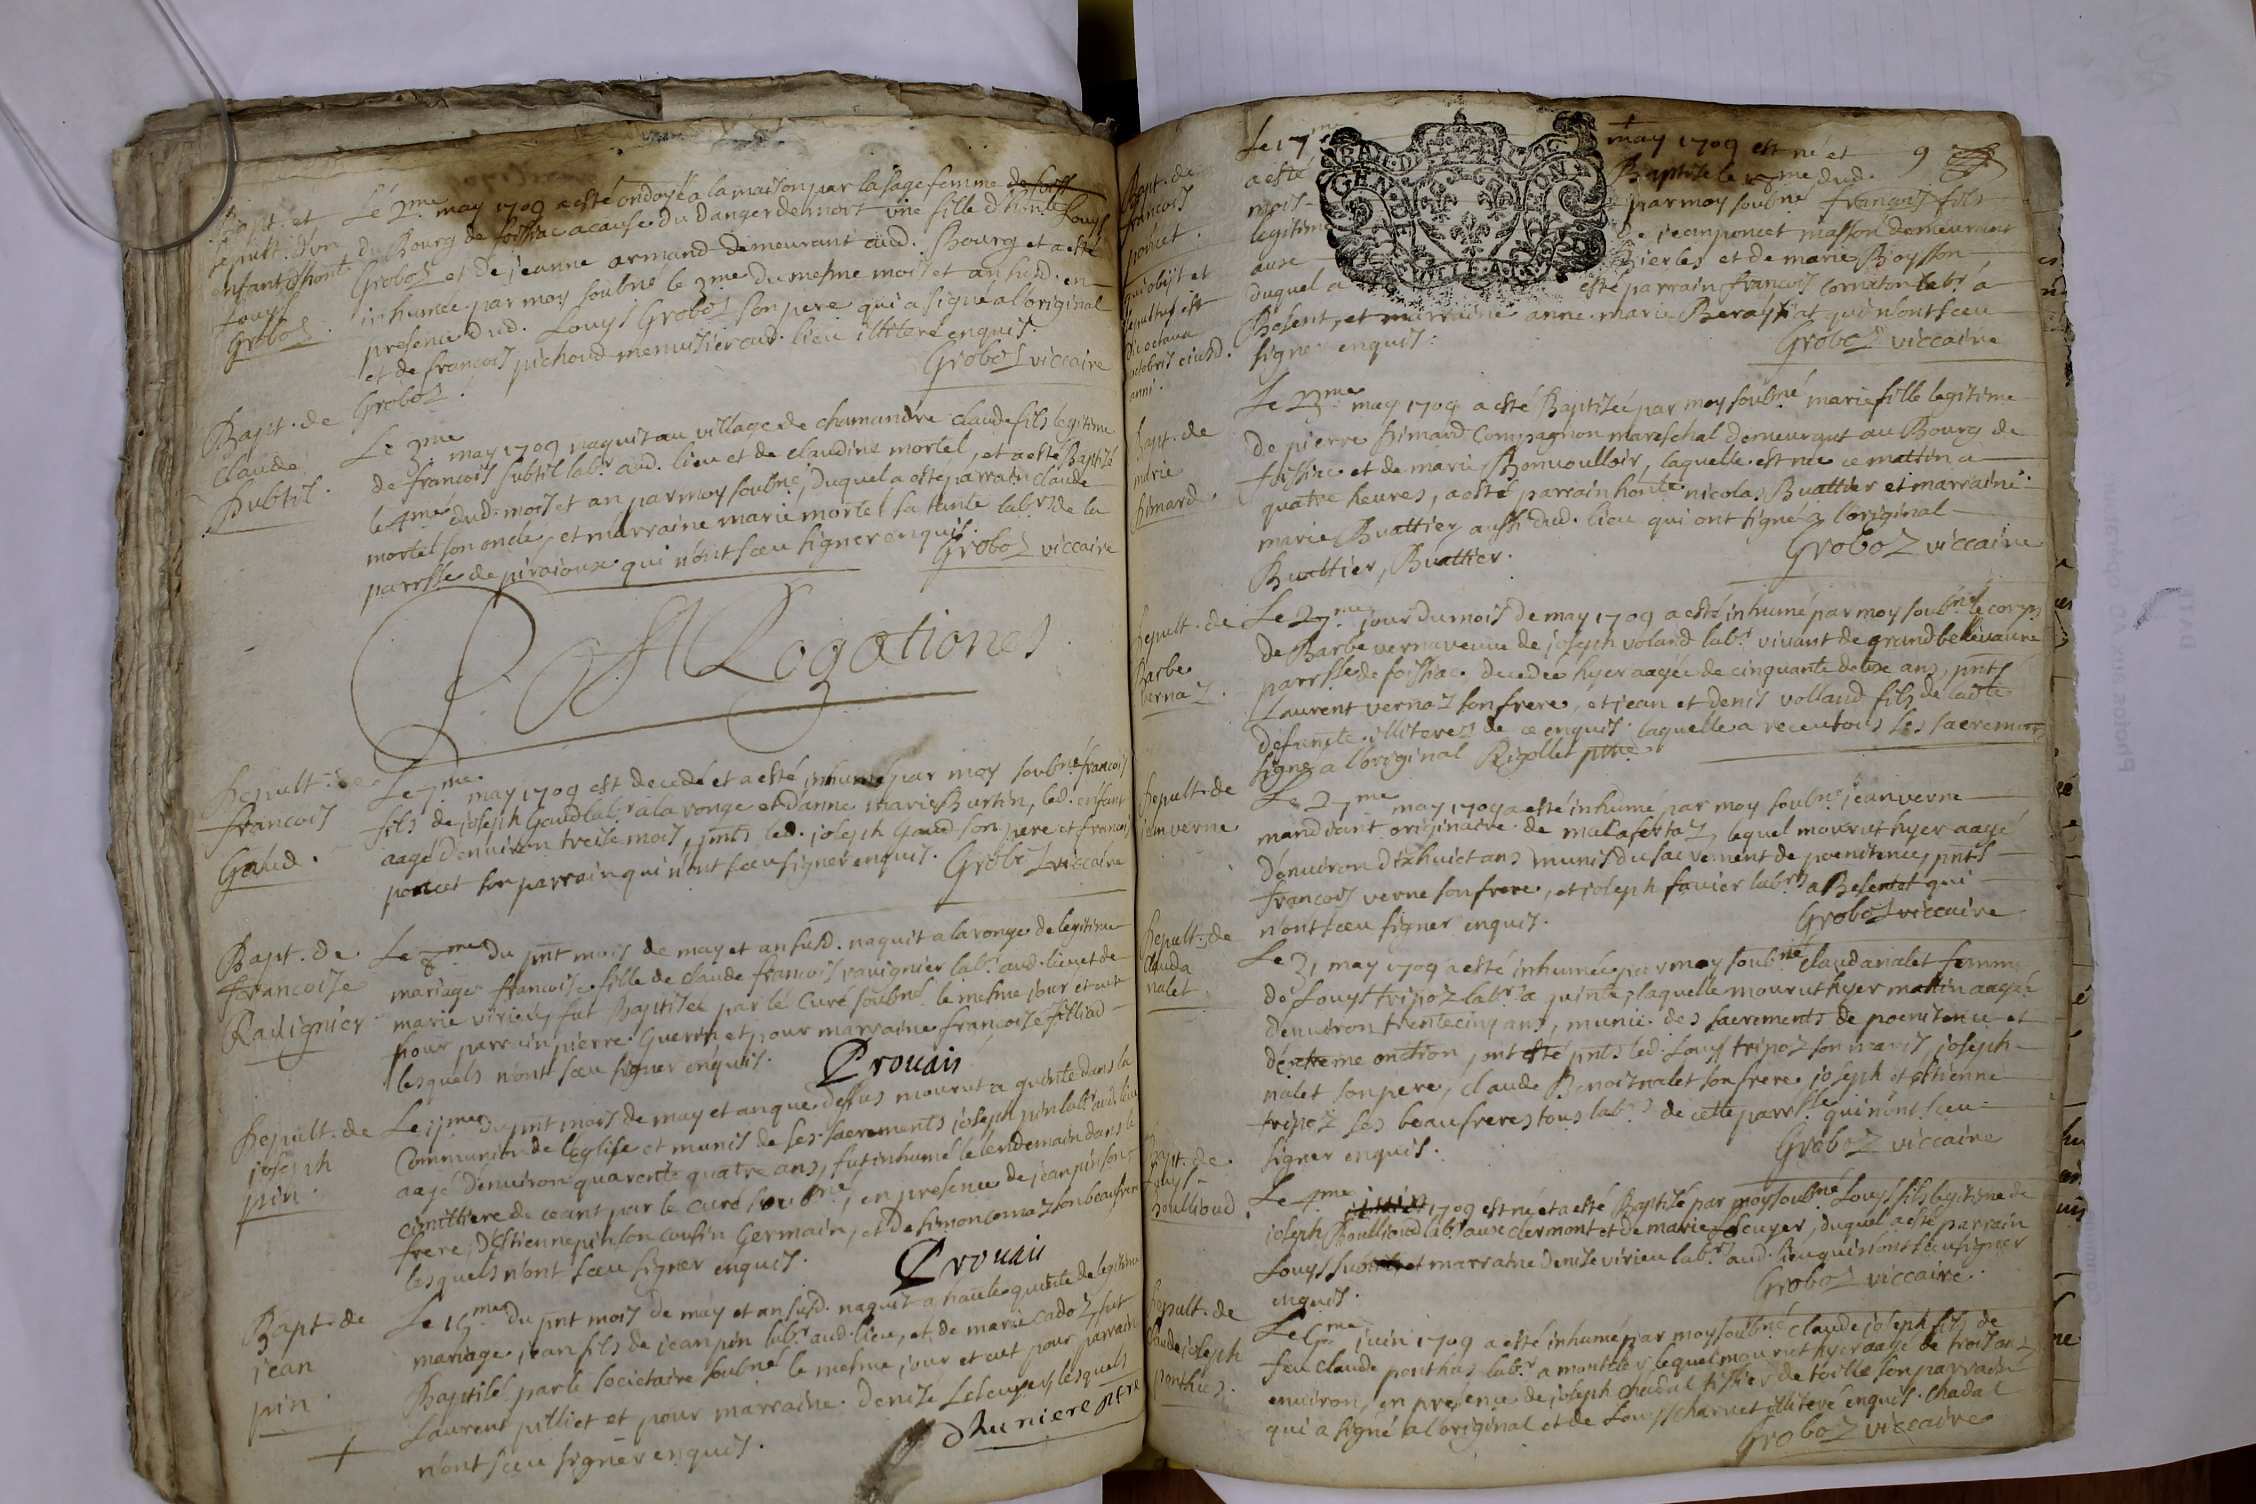 Bapt. et
sepult. d'un
enfant d'honte
Louys
Groboz.
Le 2.me may 1709 a esté ondoyé a la maison par la sage femme
du Bourg de foissiac a cause du danger de mort une fille d'honte Louys
Groboz et de jeanne armand demeurant aud. Bourg et a esté
inhumée par moy soubné le 3me du mesme mois et an susd. en
presence dud. Louys Groboz son pere qui a signé a l'original
et de françois pichoud menusier aud. lieu illiteré enquis.
Groboz.
Groboz viccaire
Bapt. de
Claude
Subtil.
Le 3.me may 1709 naquit au village de chamandre claude fils legitime
de françois subtil labr. aud. lieu et de claudine mortel, et a esté Baptisé
le 4.me dud. mois et an par moy soubné, duquel a esté parrain claude
mortel son oncle, et marraine marie mortel sa tante labrs de la
parrsse de piraioux qui n'ont sceu signer enquis.
Groboz viccaire
Post Rogationes
Sepult. de
francois
Gaud.
Le 7.me may 1709 est decedé et a esté inhumé par moy soubné francois
fils de joseph Gaud labr. a la ronge et d'anne marie Burtin, led. enfant
aagé d'environ treise mois, pnts led. joseph Gaud son pere et francois
poncet son parrain qui n'ont sceu signer enquis. Groboz viccaire
Bapt. de
francoise
Ravignier
Le 8me du pnt mois de may et an susd. naquit a la ronge de legitime
mariage francoise fille de claude francois ravignier labr. aud. lieu et de
marie virieu, fut Baptisée par le Curé soubné le mesme jour et eut
pour parrain pierre Guerin et pour marraine francoise filliad
lesquels n'ont sceu signer enquis. Prouais
Sepult. de
joseph
pin.
Le me du pnt mois de may et an que dessus mourut a quinte dans la
Communion de l'Eglise et munis de ses sacrements joseph pin labr. aud. lieu
aagé d'environ quarente quatre ans, fut inhumé le lendemain dans le
cimittiere de ceant par le Curé soubné, en presence de jean pin son
frere, d'Estienne pin son cousin Germain, et de simon cornaz son beaufrere
lesquels n'ont sceu signer enquis. Prouais
Bapt. de
jean
pin.
Le me du pnt mois de may et an susd. naquit a haute quinte de legitime
mariage jean fils de jean pin labr. aud. lieu, et de marie cadoz, fut
Baptisé par le societaire soubné le mesme jour et eut pour parrain
Laurent pilliet et pour marraine Denise Lescuyer, lesquels
n'ont sceu signer enquis.
Bapt. de
francois
poncet.
qui obijt et
sepultus est
die octava
octobris eiusd.
anni.
9
Le 17me may 1709 est né et
a esté Baptisé le me dud.
mois par moy soubné françois fils
legitime de jean poncet masson demeurant
aux Bierles et de marie Boysson
duquel a esté parrain francois Cornaton labr. a
Besent, et marraine anne marie Berayziat qui n'ont sceu
signer enquis. Groboz viccaire
Bapt. de
marie
Simard.
Le me may 1709 a esté Baptisée par moy soubné marie fille legitime
de pierre Simard Compagnon mareschal demeurant au Bourg de
foissiac et de marie Bonvoulloir, laquelle est née ce mattin a
quatre heures, a esté parrain honte nicolas Buattier et marraine
marie Buattier aussi dud. lieu qui ont signé a l'original
Buattier, Buattier. Groboz viccaire
Sepult. de
Barbe
Vernaz.
Le 27.me jour du mois de may 1709 a esté inhumé par moy soubné le corps
de Barbe verna veuve de joseph voland labr. vivant de grand bellevaure
parrsse de foissiac decedée hyer aagée de cinquante deux ans, pnts
Laurent vernaz son frere, et jean et denis volland fils de ladte
defuncte illiterez de ce enquis. laquelle a receu tous les sacremens
signé a l'original Rigollet ptre
Sepult. de
jean verne
Le 27me may 1709 a esté inhumé par moy soubné jean verne
mandiant originaire de malafertaz, lequel mourut hyer aagé
d'environ dixhuict ans munis du sacrement de poenitence, pnts
francois verne son frere, et joseph favier labrs a Besentet qui
n'ont sceu signer enquis. Groboz viccaire
Sepult. de
Clauda
nalet
Le 31 may 1709 a esté inhumée par moy soubné clauda nalet femme
de Louys tripoz labr. a quinte, laquelle mourut hyer mattin aagée
d'environ trente cinq ans, munie des sacrements de poenitence et
d'extreme onction, ont esté pnts led. Louys tripoz son maris, joseph
nalet son pere, claude Benoist nalet son frere, joseph et estienne
tripoz ses beaufreres tous labrs de cette parrsse qui n'ont sceu
signer enquis. Groboz viccaire
Bapt. de
Louys
Boullioud.
Le 4me juin 1709 est né et a esté Baptisé par moy soubné Louys fils legitime de
joseph Boullioud labr. aux clermont et de marie Lescuyer, duquel a esté parrain
Louys subtil et marraine Denise virieu labrs aud. lieu qui n'ont sceu signer
enquis. Groboz viccaire.
Sepult. de
claude joseph
ponthus.
Le me juin 1709 a esté inhumé par moy soubné claude joseph fils de
feu claude ponthus labr. a lequel mourut hyer aagé de trois ans
environ, en presence de joseph chadal tissier de toille son parrain
qui a signé a l'original et de Louys charvet illiteré enquis. chadal
Groboz viccaire